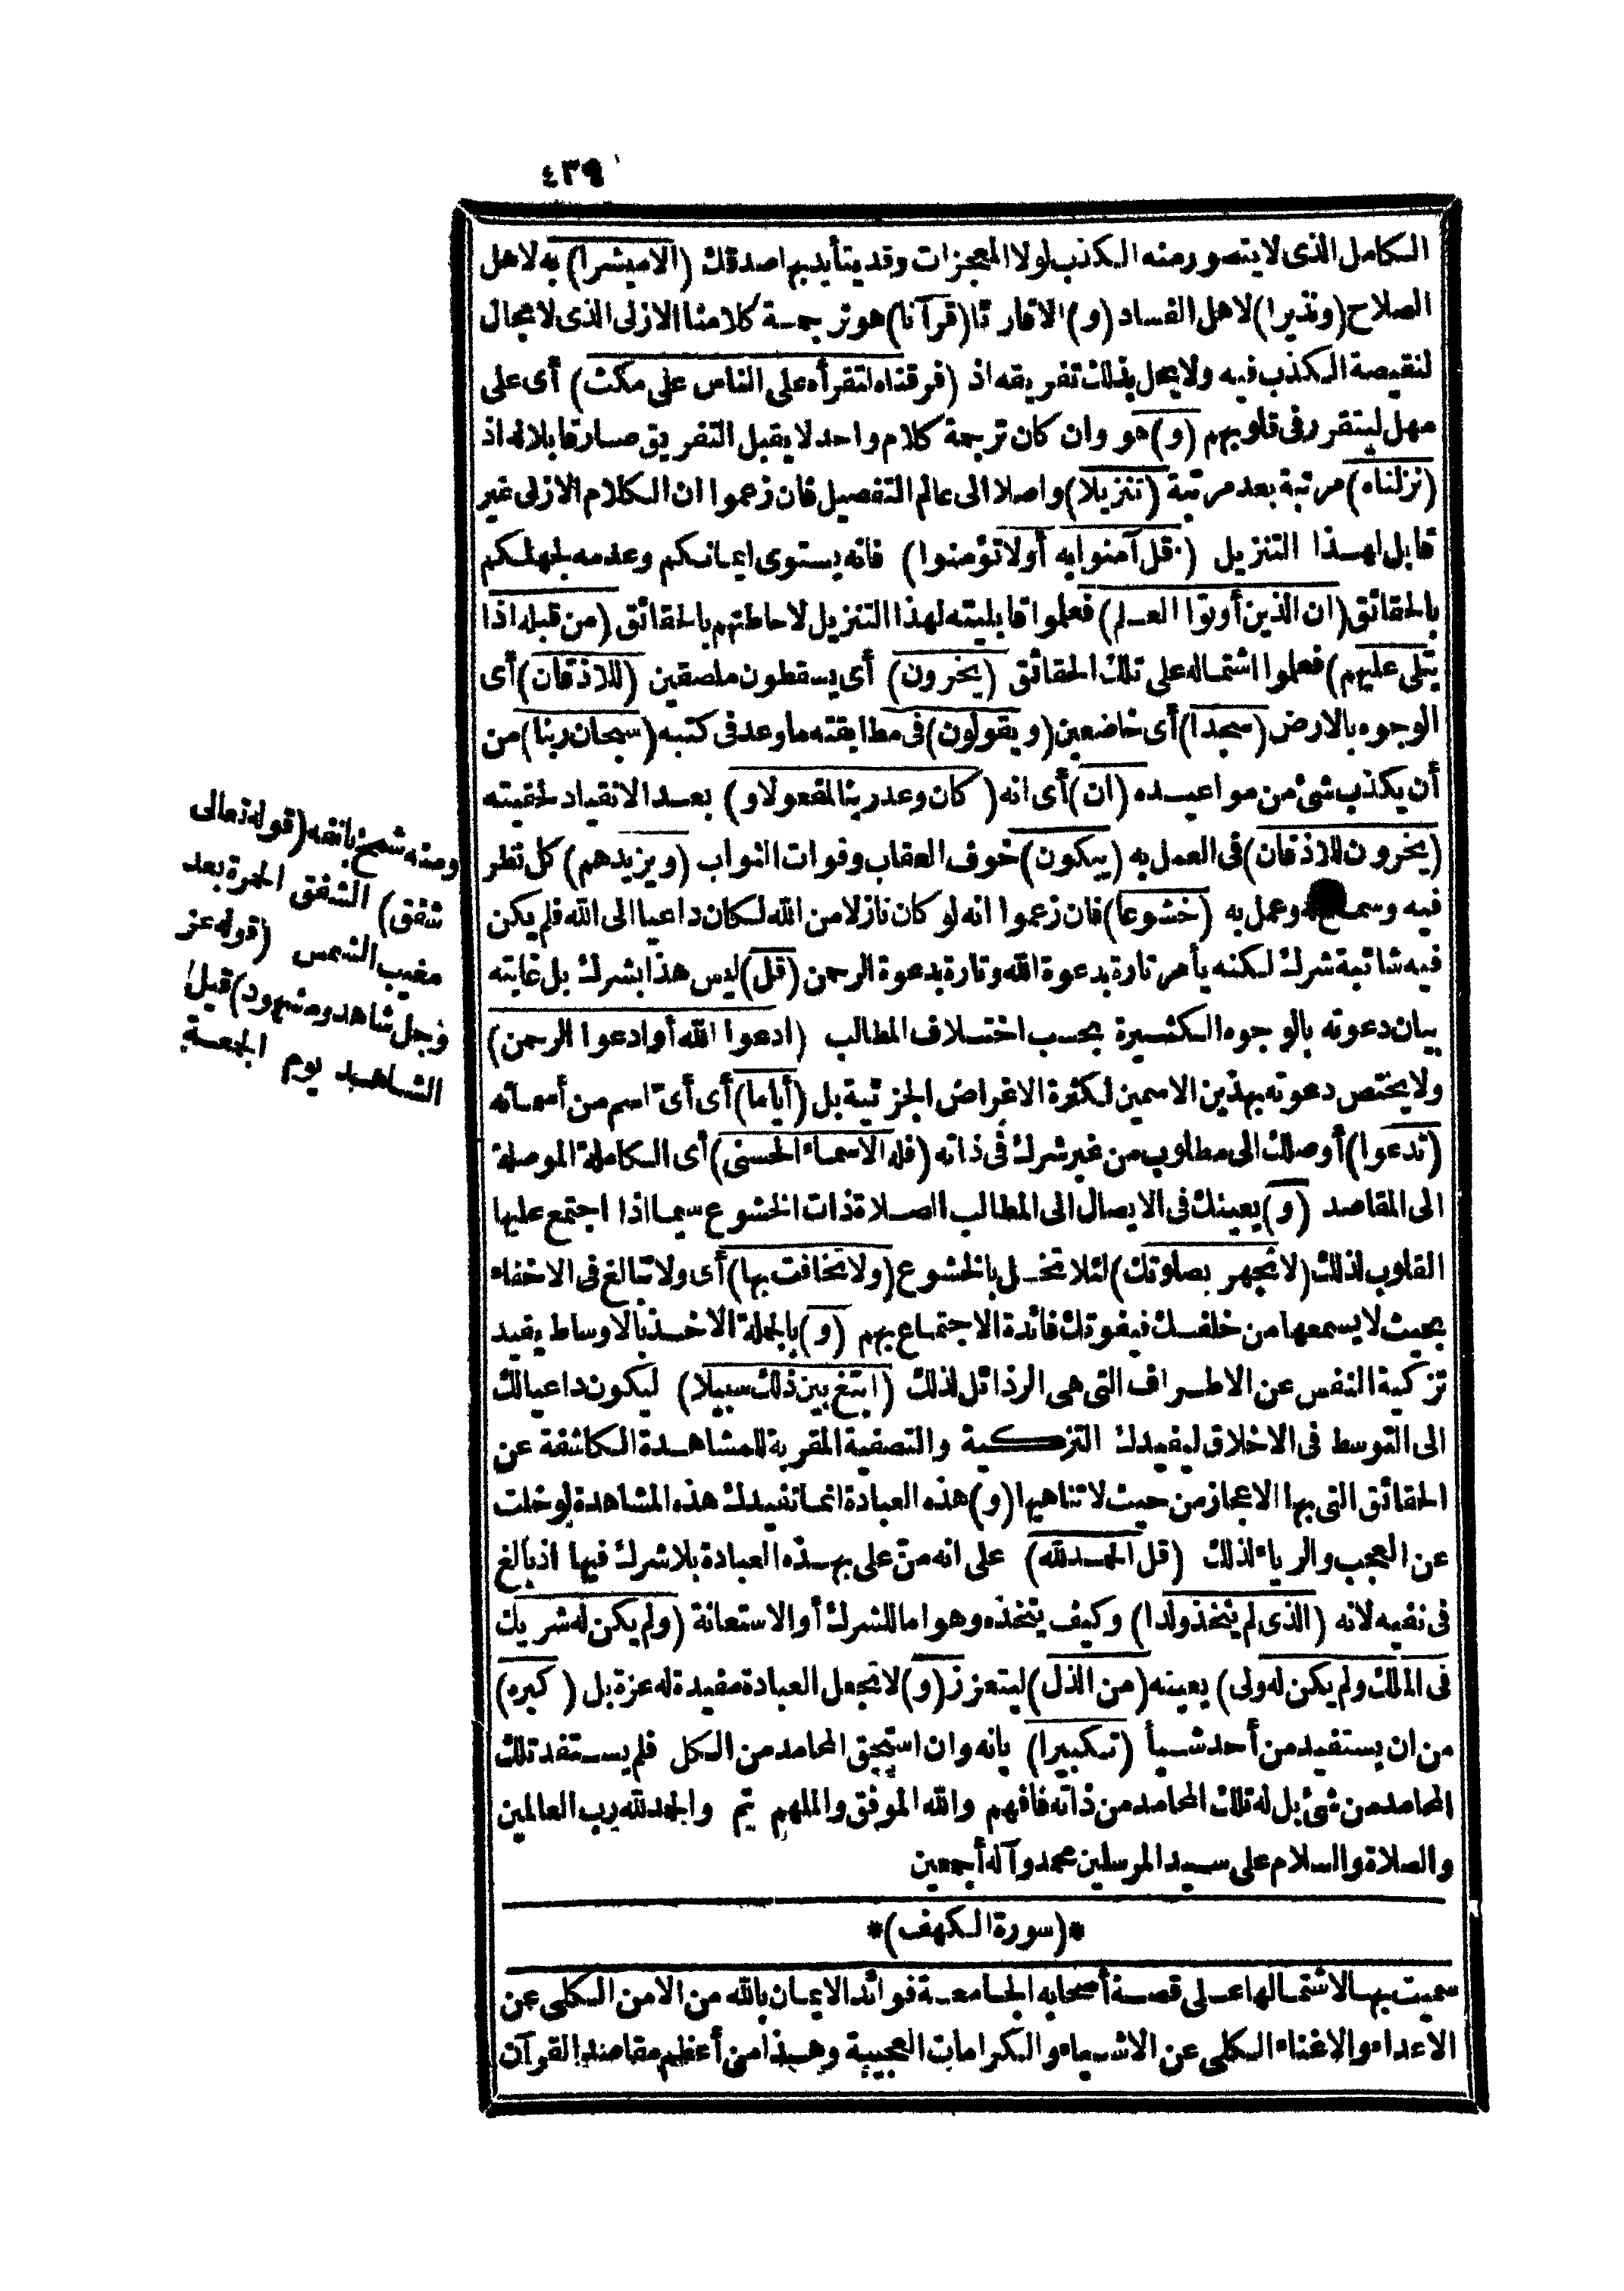 ٤٣٩
الكامل الذى لا يتصور منه الكذب لولا المعجزات وقد يتأيد بها صدقك (الا مبشرا) به لاهل
الصلاح (ونذيرا) لاهل الفساد (و) الا قارئا (قرآنا) هو ترجمة كلامنا الازلى الذى لا مجال
لنقيصة الكذب فيه ولا يخل بذلك تفريقه اذ (فرقناه لتقرأه على الناس على مكث) أى على
مهل ليتقرر فى قلوبهم (و) هو وان كان ترجمة كلام واحد لا يقبل التفريق صار قابلا له اذ
(نزلناه) مرتبة بعد مرتبة (تنزيلا) واصلا الى عالم التفصيل فان زعموا ان الكلام الازلى غير
قابل لهذا التنزيل (قل آمنوا به أولا تؤمنوا) فانه يستوى ايمانكم وعدمه لجهلكم
بالحقائق (ان الذين أوتوا العلم) فعلموا قابليته لهذا التنزيل لاحاطتهم بالحقائق (من قبله اذا
يتلى عليهم) فعلموا اشتماله على تلك الحقائق (يخرون) أى يسقطون ملصقين (للاذقان) أى
الوجوه بالارض (سجدا) أى خاضعين (ويقولون) فى مطابقته ما وعد فى كتبه (سبحان ربنا) من
أن يكذب شئ من مواعيده (ان) أى انه (كان وعد ربنا لمفعولا و) بعد الانقياد لحقيته
(يخرون للاذقان) فى العمل به (يبكون) خوف العقاب وفوات الثواب (ويزيدهم) كل نظر
فيه وسماع له وعمل به (خشوعا) فان زعموا انه لو كان نازلا من الله لكان داعيا الى الله فلم يكن
فيه شائبة شرك لكنه يأمر تارة بدعوة الله وتارة بدعوة الرحمن (قل) ليس هذا بشرك بل غايته
بيان دعوته بالوجوه الكثيرة بحسب اختلاف المطالب (ادعوا الله أو ادعوا الرحمن)
ولا يختص دعوته بهذين الاسمين لكثرة الاغراض الجزئية بل (أياما) أى أى اسم من أسمائه
(تدعوا) أوصلك الى مطلوب من غير شرك فى ذاته (فله الاسماء الحسنى) أى الكاملة الموصلة
الى المقاصد (و) يعينك فى الايصال الى المطالب الصلاة ذات الخشوع سيما اذا اجتمع عليها
القلوب لذلك (لا تجهر بصلاتك) لئلا تخل بالخشوع (ولا تخافت بها) أى ولا تبالغ فى الاخفاء
بحيث لا يسمعها من خلفك فيفوتك فائدة الاجتماع بهم (و) بالجملة الاخذ بالاوساط يفيد
تزكية النفس عن الاطراف التى هى الرذائل لذلك (ابتغ بين ذلك سبيلا) ليكون داعيا لك
الى التوسط فى الاخلاق ليفيدك التزكية والتصفية المقربة للمشاهدة الكاشفة عن
الحقائق التى بها الاعجاز من حيث لا تناهيها (و) هذه العبادة انما تفيدك هذه المشاهدة لو خلت
عن العجب والرياء لذلك (قل الحمد لله) على انه من على بهذه العبادة بلا شرك فيها اذ بالغ
فى نفيه لانه (الذى لم يتخذ ولدا) وكيف يتخذه وهو اما للشرك أو الاستعانة (ولم يكن له شريك
فى الملك ولم يكن له ولى) يعينه (من الذل) ليتعزز (و) لا تجعل العبادة مفيدة له عزة بل (كبره)
من ان يستفيد من أحد شيأ (تكبيرا) بانه وان استحق المحامد من الكل فلم يستفد تلك
المحامد من شئ بل له تلك المحامد من ذاته فافهم والله الموفق والملهم تم والحمد لله رب العالمين
والصلاة والسلام على سيد المرسلين محمد وآله أجمعين
*(سورة الكهف)*
سميت بها لاشتمالها على قصة أصحابه الجامعة فوائد الايمان بالله من الامن الكلى عن
الاعداء والاغناء الكلى عن الاشياء والكرامات العجيبة وهذا من أعظم مقاصد القرآن
ومنه شمخ بانفه (قوله تعالى
شفق) الشفق الحمرة بعد
مغيب الشمس (قوله عز
وجل شاهد ومشهود) قيل
الشاهد يوم الجمعة